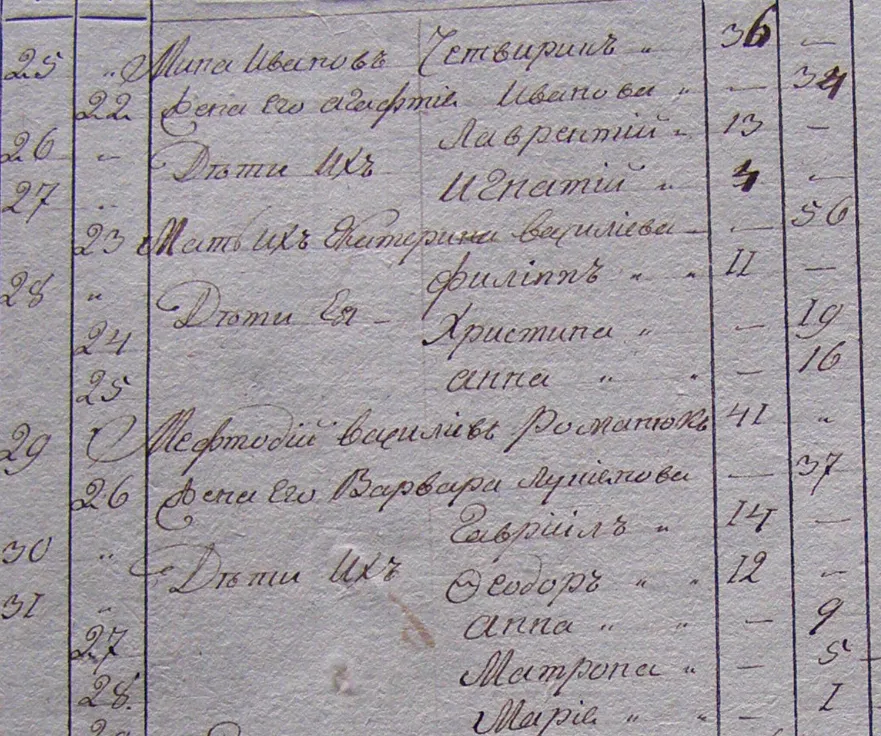 25 „ Мина Ивановъ Четвиринъ „ 36 —
22 Жена Его Агафтія Иванова „ — 34
26 „ Дѣти Ихъ Лаврентій „ 13 —
27 „ Игнатій „ 4 „
23 Мать Ихъ Екатерина Василіева — — 56
28 „ Дѣти Ея — Филіппъ „ „ 11 —
24 Христина „ — 19
25 Анна „ „ — 16
29 Мефтодій Василіевъ Романюкъ 41 „
26 Жена Его Варвара — 37
30 „ Дѣти Ихъ Гавріилъ „ 14 —
31 „ Ѳеодоръ „ „ 12 „
27 Анна „ „ — 9
28. Матрона „ — 5
Марія „ „ — 1